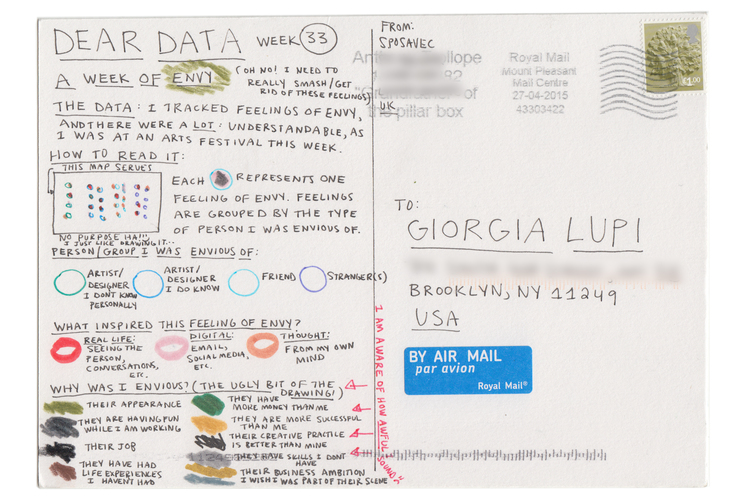 DEAR DATA WEEK 33
A WEEK OF ENVY (OH NO! I NEED TO
REALLY SMASH/GET
RID OF THESE FEELINGS)
THE DATA: I TRACKED FEELINGS OF ENVY,
AND THERE WERE A LOT: UNDERSTANDABLE, AS
I WAS AT AN ARTS FESTIVAL THIS WEEK.
HOW TO READ IT:
THIS MAP SERVES
NO PURPOSE HA!!!,
I JUST LIKE DRAWING IT...
EACH REPRESENTS ONE
FEELING OF ENVY. FEELINGS
ARE GROUPED BY THE TYPE
OF PERSON I WAS ENVIOUS OF.
PERSON/GROUP I WAS ENVIOUS OF:
ARTIST/
DESIGNER
I DON'T KNOW
PERSONALLY
ARTIST/
DESIGNER
I DO KNOW
FRIEND
STRANGER(S)
WHAT INSPIRED THIS FEELING OF ENVY?
REAL LIFE:
SEEING THE
PERSON,
CONVERSATIONS,
ETC.
DIGITAL:
EMAIL,
SOCIAL MEDIA,
ETC.
THOUGHT:
FROM MY OWN
MIND
WHY WAS I ENVIOUS? (THE UGLY BIT OF THE
DRAWING!)
THEIR APPEARANCE
THEY ARE HAVING FUN
WHILE I AM WORKING
THEIR JOB
THEY HAVE HAD
LIFE EXPERIENCES
I HAVEN'T HAD
THEY HAVE
MORE MONEY THAN ME
THEY ARE MORE SUCCESSFUL
THAN ME
THEIR CREATIVE PRACTICE
IS BETTER THAN MINE
THEY HAVE SKILLS I DONT
HAVE
THEIR BUSINESS AMBITION
I WISH I WAS PART OF THEIR SCENE
I AM AWARE OF HOW AWFUL I SOUND
FROM:
SPOSAVEC
UK
the pillar box
Royal Mail
Mount Pleasant
Mail Centre
27-04-2015
43303422
£1.00
TO:
GIORGIA LUPI
BROOKLYN, NY 11249
USA
BY AIR MAIL
par avion
Royal Mail®